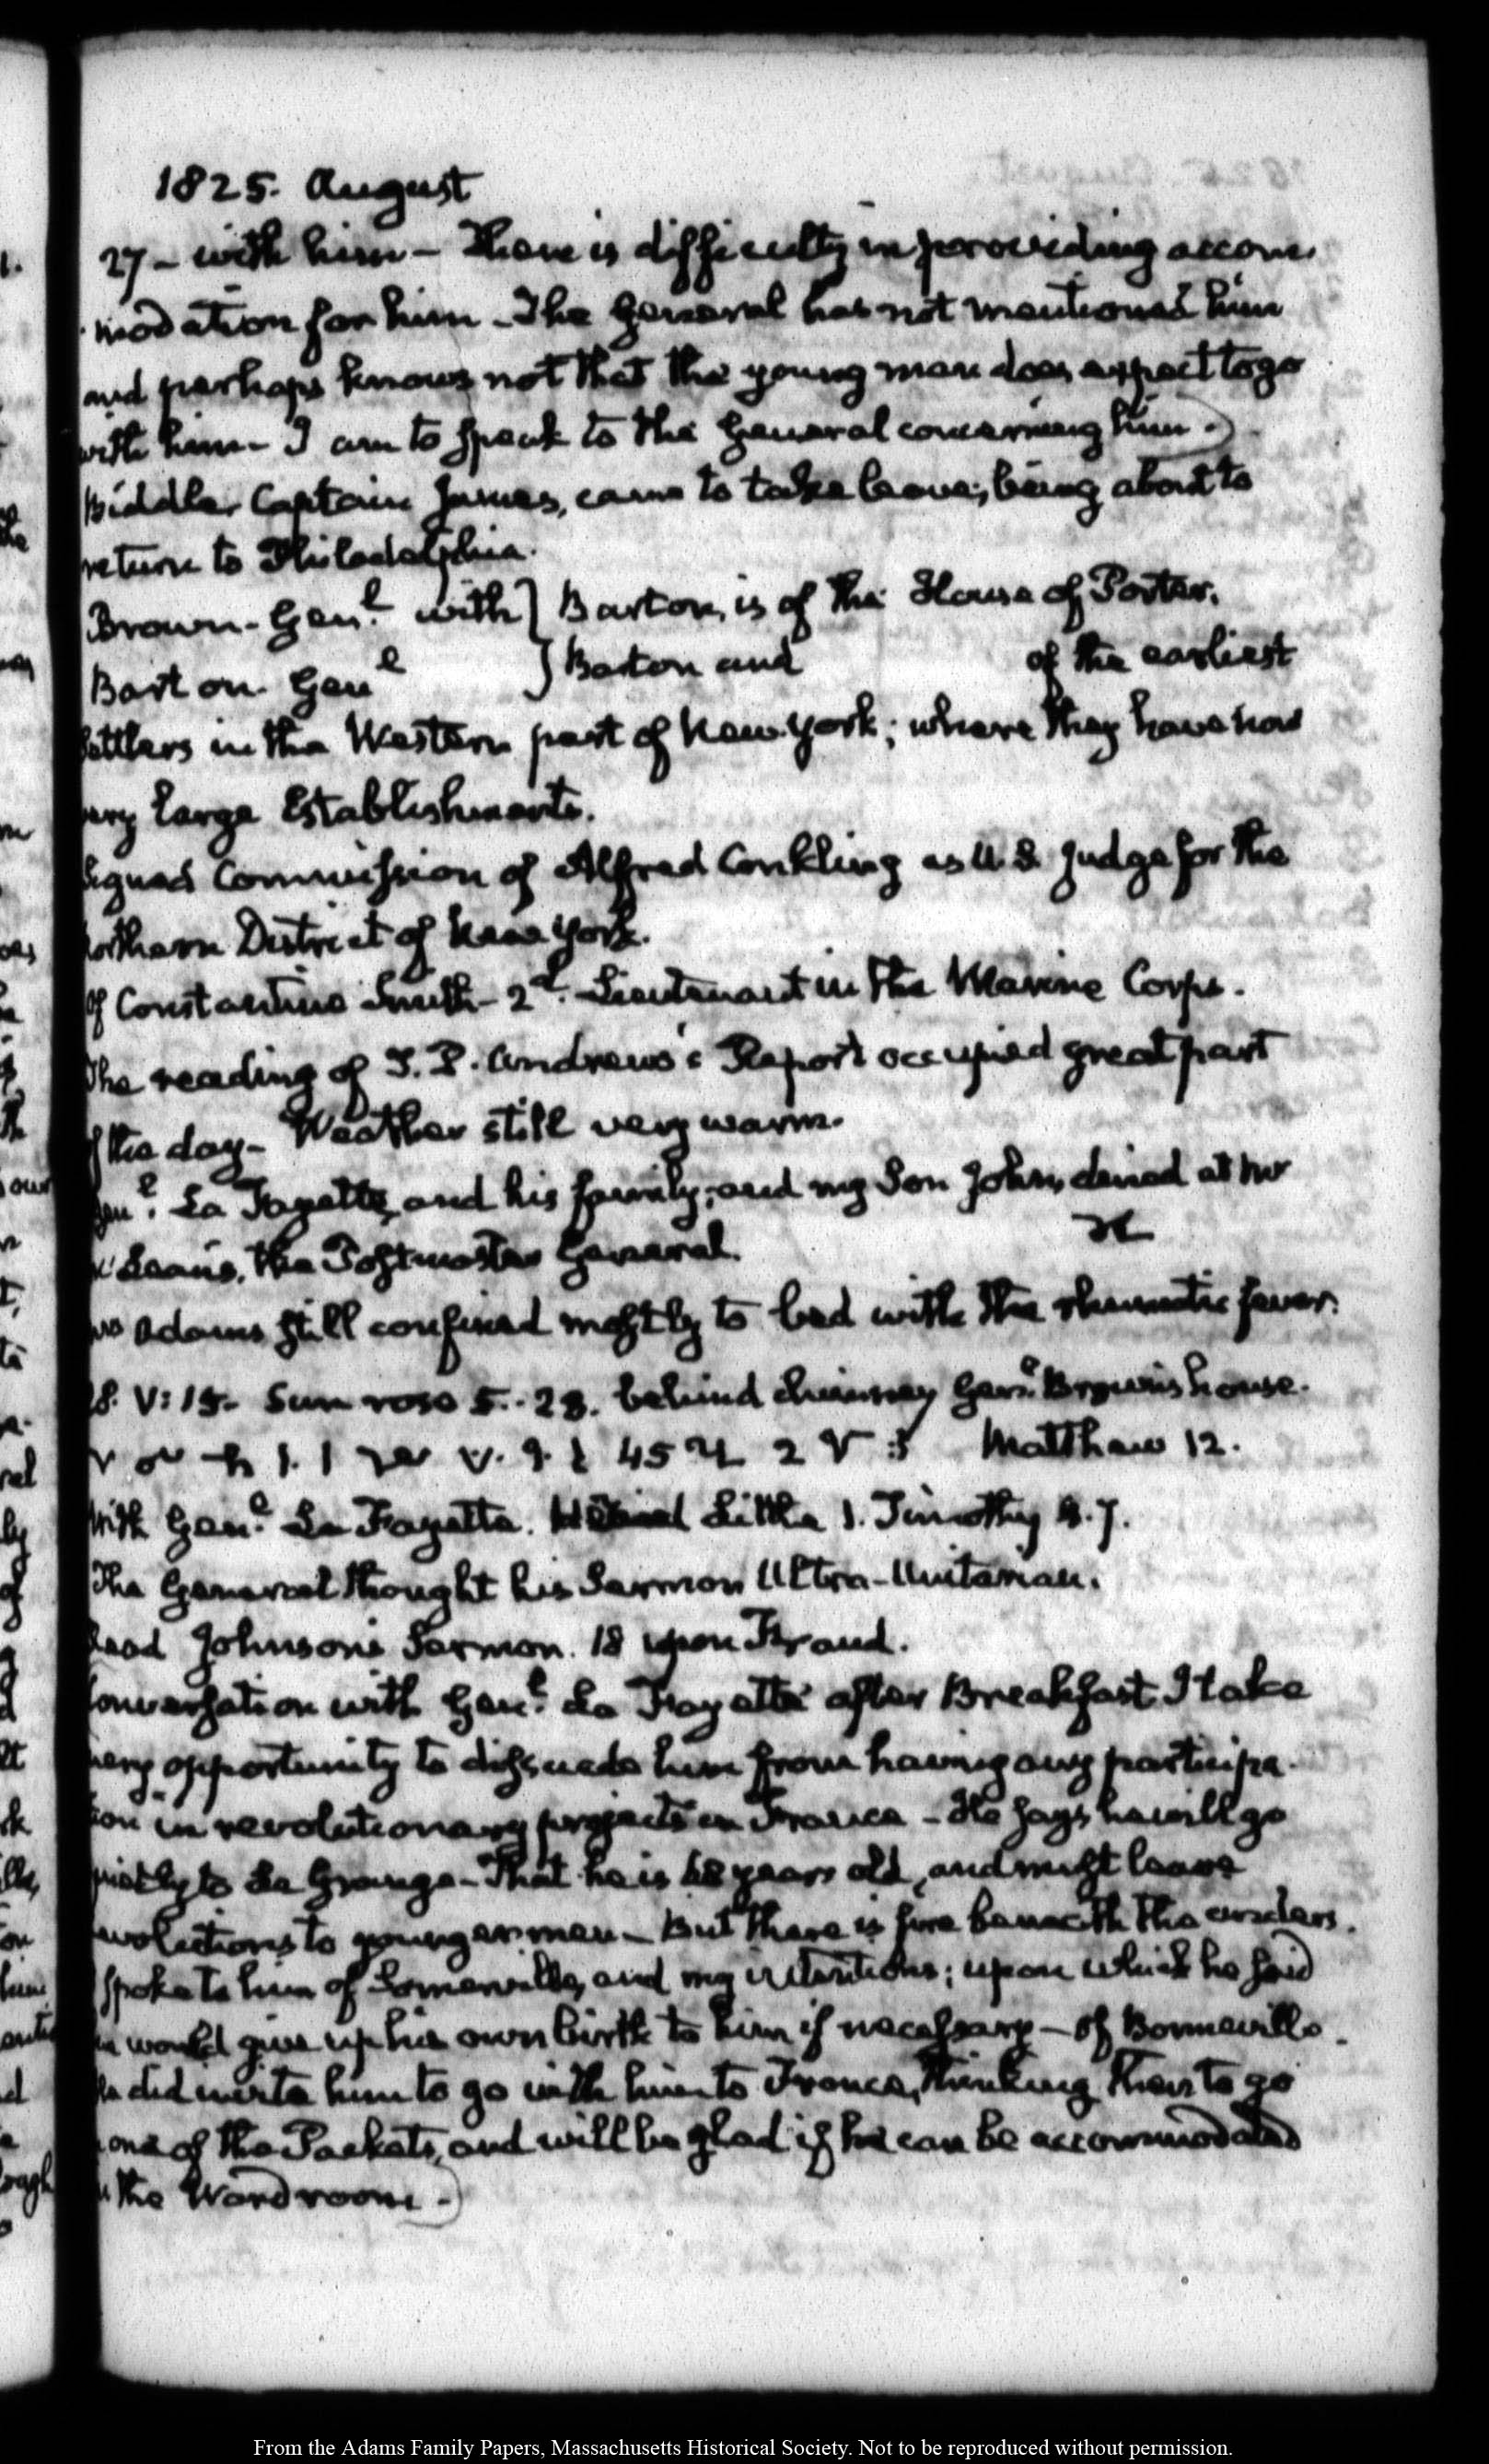 1825. August
27 - with him - There is difficulty in providing accom
modation for him - The General has not mentioned him
and perhaps knows not that the young man does expect to go
with him - I am to speak to the General concerning him.)
Biddle, Captain James, came to take leave; being about to
return to Philadelphia.
Brown. Genl. with } Barton, is of the House of Porter,
Barton. Genl } Barton and of the earliest
settlers in the Western part of New York; where they have now
very large Establishments.
Signed Commission of Alfred Conkling as U.S. Judge for the
Northern District of New York.
Of Constantine Smith - 2d. Lieutenant in the Marine Corps.
The reading of T. P. Andrews's Report occupied great part
of the day - Weather still very warm.
Genl. La Fayette, and his family, and my Son John, dined at Mr
Mc Lean's, the Postmaster General.
Adams still confined mostly to bed with the rheumatic fever.
28. V: 15. Sun rose 5.. 28. behind chimney Genl. Brown's house.
45 2 Matthew 12.
With Genl. La Fayette. Heard Little 1. Timothy 4. 7.
The General thought his Sermon Ultra-Unitarian.
Read Johnson's Sermon. 18 upon Fraud.
Conversation with Genl. La Fayette after Breakfast. I take
every opportunity to dissuade him from having any participa-
tion in revolutionary projects in France - He says he will go
quietly to La Grange - That he is 68 years old, and must leave
revolutions to younger men - But there is fire beneath the cinders.
Spoke to him of Somerville, and my intentions; upon which he said
he would give up his own birth to him if necessary - of Bonneville
he did invite him to go with him to France, thinking then to go
one of the Packets, and will be glad if he can be accommodated
the Ward room.)
From the Adams Family Papers, Massachusetts Historical Society. Not to be reproduced without permission.